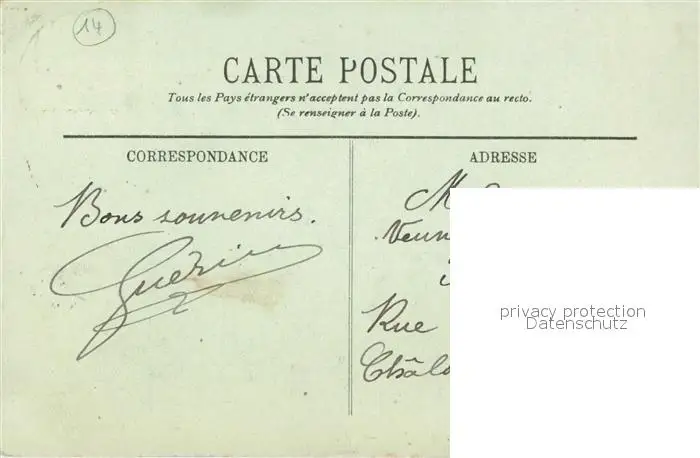 14
CARTE POSTALE
Tous les Pays étrangers n'acceptent pas la Correspondance au recto.
(Se renseigner à la Poste).
CORRESPONDANCE
ADRESSE
Bons souvenirs.
Guérin
M
Veuv
Rue
Châlo
privacy protection
Datenschutz